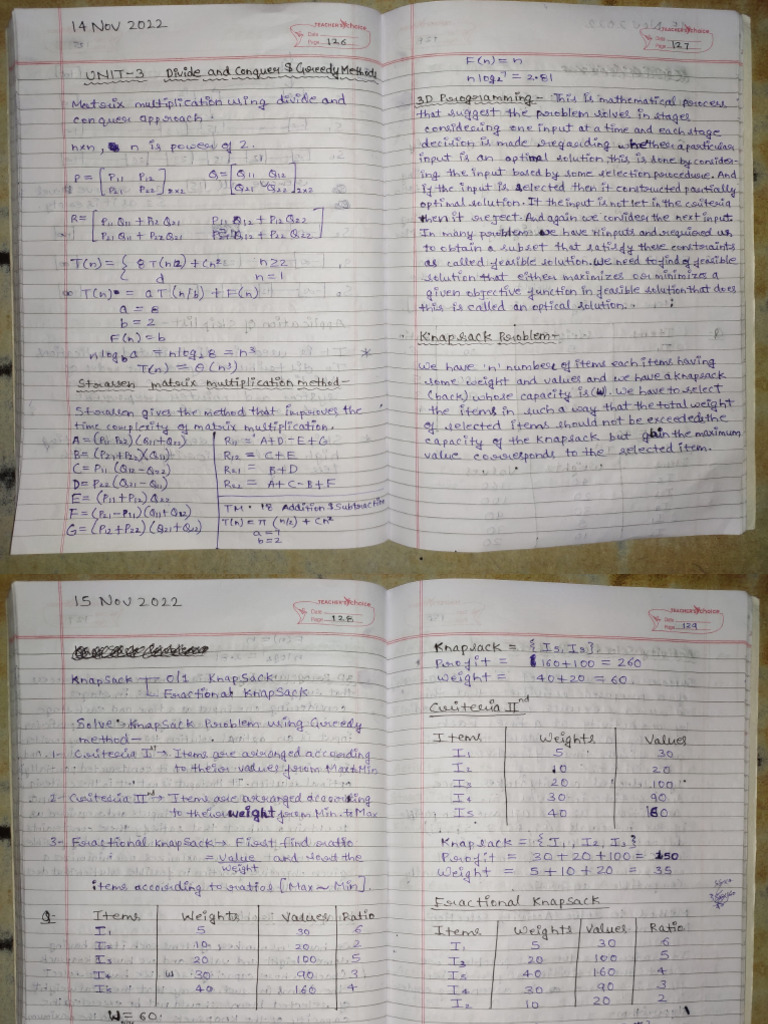 14 Nov 2022
TEACHER'S choice
Date
Page 126
UNIT-3 Divide and Conquer & Greedy Methods
Matrix multiplication using divide and
conquer approach.
n×n, n is power of 2.
P = [P11 P12
P21 P22]2×2
Q = [Q11 Q12
Q21 Q22]2×2
R = [P11 Q11 + P12 Q21 P11 Q12 + P12 Q22
P21 Q11 + P22 Q21 P21 Q12 + P22 Q22]
T(n) = { 8 T(n/2) + Cn² n≥2
d n=1
T(n) = a T(n/b) + F(n)
a = 8
b = 2
F(n) = b
n log b a = n log2 8 = n³
T(n) = θ(n³)
Strassen matrix multiplication method-
Strassen gives the method that improves the
time complexity of matrix multiplication.
A = (P11 P22) (Q11+Q22)
B = (P21+P22) (Q11)
C = P11 (Q12 - Q22)
D = P22 (Q21 - Q11)
E = (P11+P12) Q22
F = (P21-P11) (Q11+Q12)
G = (P12+P22) (Q21+Q22)
R11 = A+D-E+G
R12 = C+E
R21 = B+D
R22 = A+C-B+F
TM. 18 Addition & Subtraction
T(n) = 7T (n/2) + Cn²
a=7
b=2
TEACHER'S choice
Date
Page 127
F(n) = n
n log2 7 = 2.81
3D Programming - This is mathematical process
that suggest the problem solves in stages
considering one input at a time and each stage
decision is made regarding whether a particular
input is an optimal solution, this is done by consider-
ing the input based by some selection procedure. And
if the input is selected then it constructed partially
optimal solution. If the input is not let in the criteria
then it reject. And again we consider the next input.
In many problem we have n inputs and required us
to obtain a subset that satisfy these constraints
as called feasible solution. We need to find of feasible
solution that either maximizes or minimize a
given objective function in feasible solution that does
this is called an optical solution.
Knapsack Problem-
We have 'n' number of items each items having
some weight and values and we have a knapsack
(back) whose capacity is (W). We have to select
the items in such a way that the total weight
of selected items should not be exceeded the
capacity of the knapsack but gain the maximum
value corresponds to the selected item.
15 Nov 2022
TEACHER'S choice
Date
Page 128
Knapsack 0/1 Knapsack
Fractional Knapsack
Solve Knapsack Problem using Greedy
method-
1- Criteria Ist → Items are arranged according
to their values from Max to Min
2- Criteria IInd → Items are arranged according
to their weight from Min to Max
3- Fractional knapsack → First find ratio
= value/weight and sort the
items according to ratios [Max ~ Min].
Q- Items Weights Values Ratio
I1 5 30 6
I2 10 20 2
I3 20 100 5
I4 30 90 3
I5 40 160 4
W = 60.
TEACHER'S choice
Date
Page 129
Knapsack = { I5, I3 }
Profit = 160+100 = 260
Weight = 40+20 = 60.
Criteria IInd
Items Weights Values
I1 5 30
I2 10 20
I3 20 100
I4 30 90
I5 40 160
Knapsack = { I1, I2, I3 }
Profit = 30+20+100 = 150
Weight = 5+10+20 = 35
Fractional Knapsack
Items Weights Values Ratio
I1 5 30 6
I3 20 100 5
I5 40 160 4
I4 30 90 3
I2 10 20 2